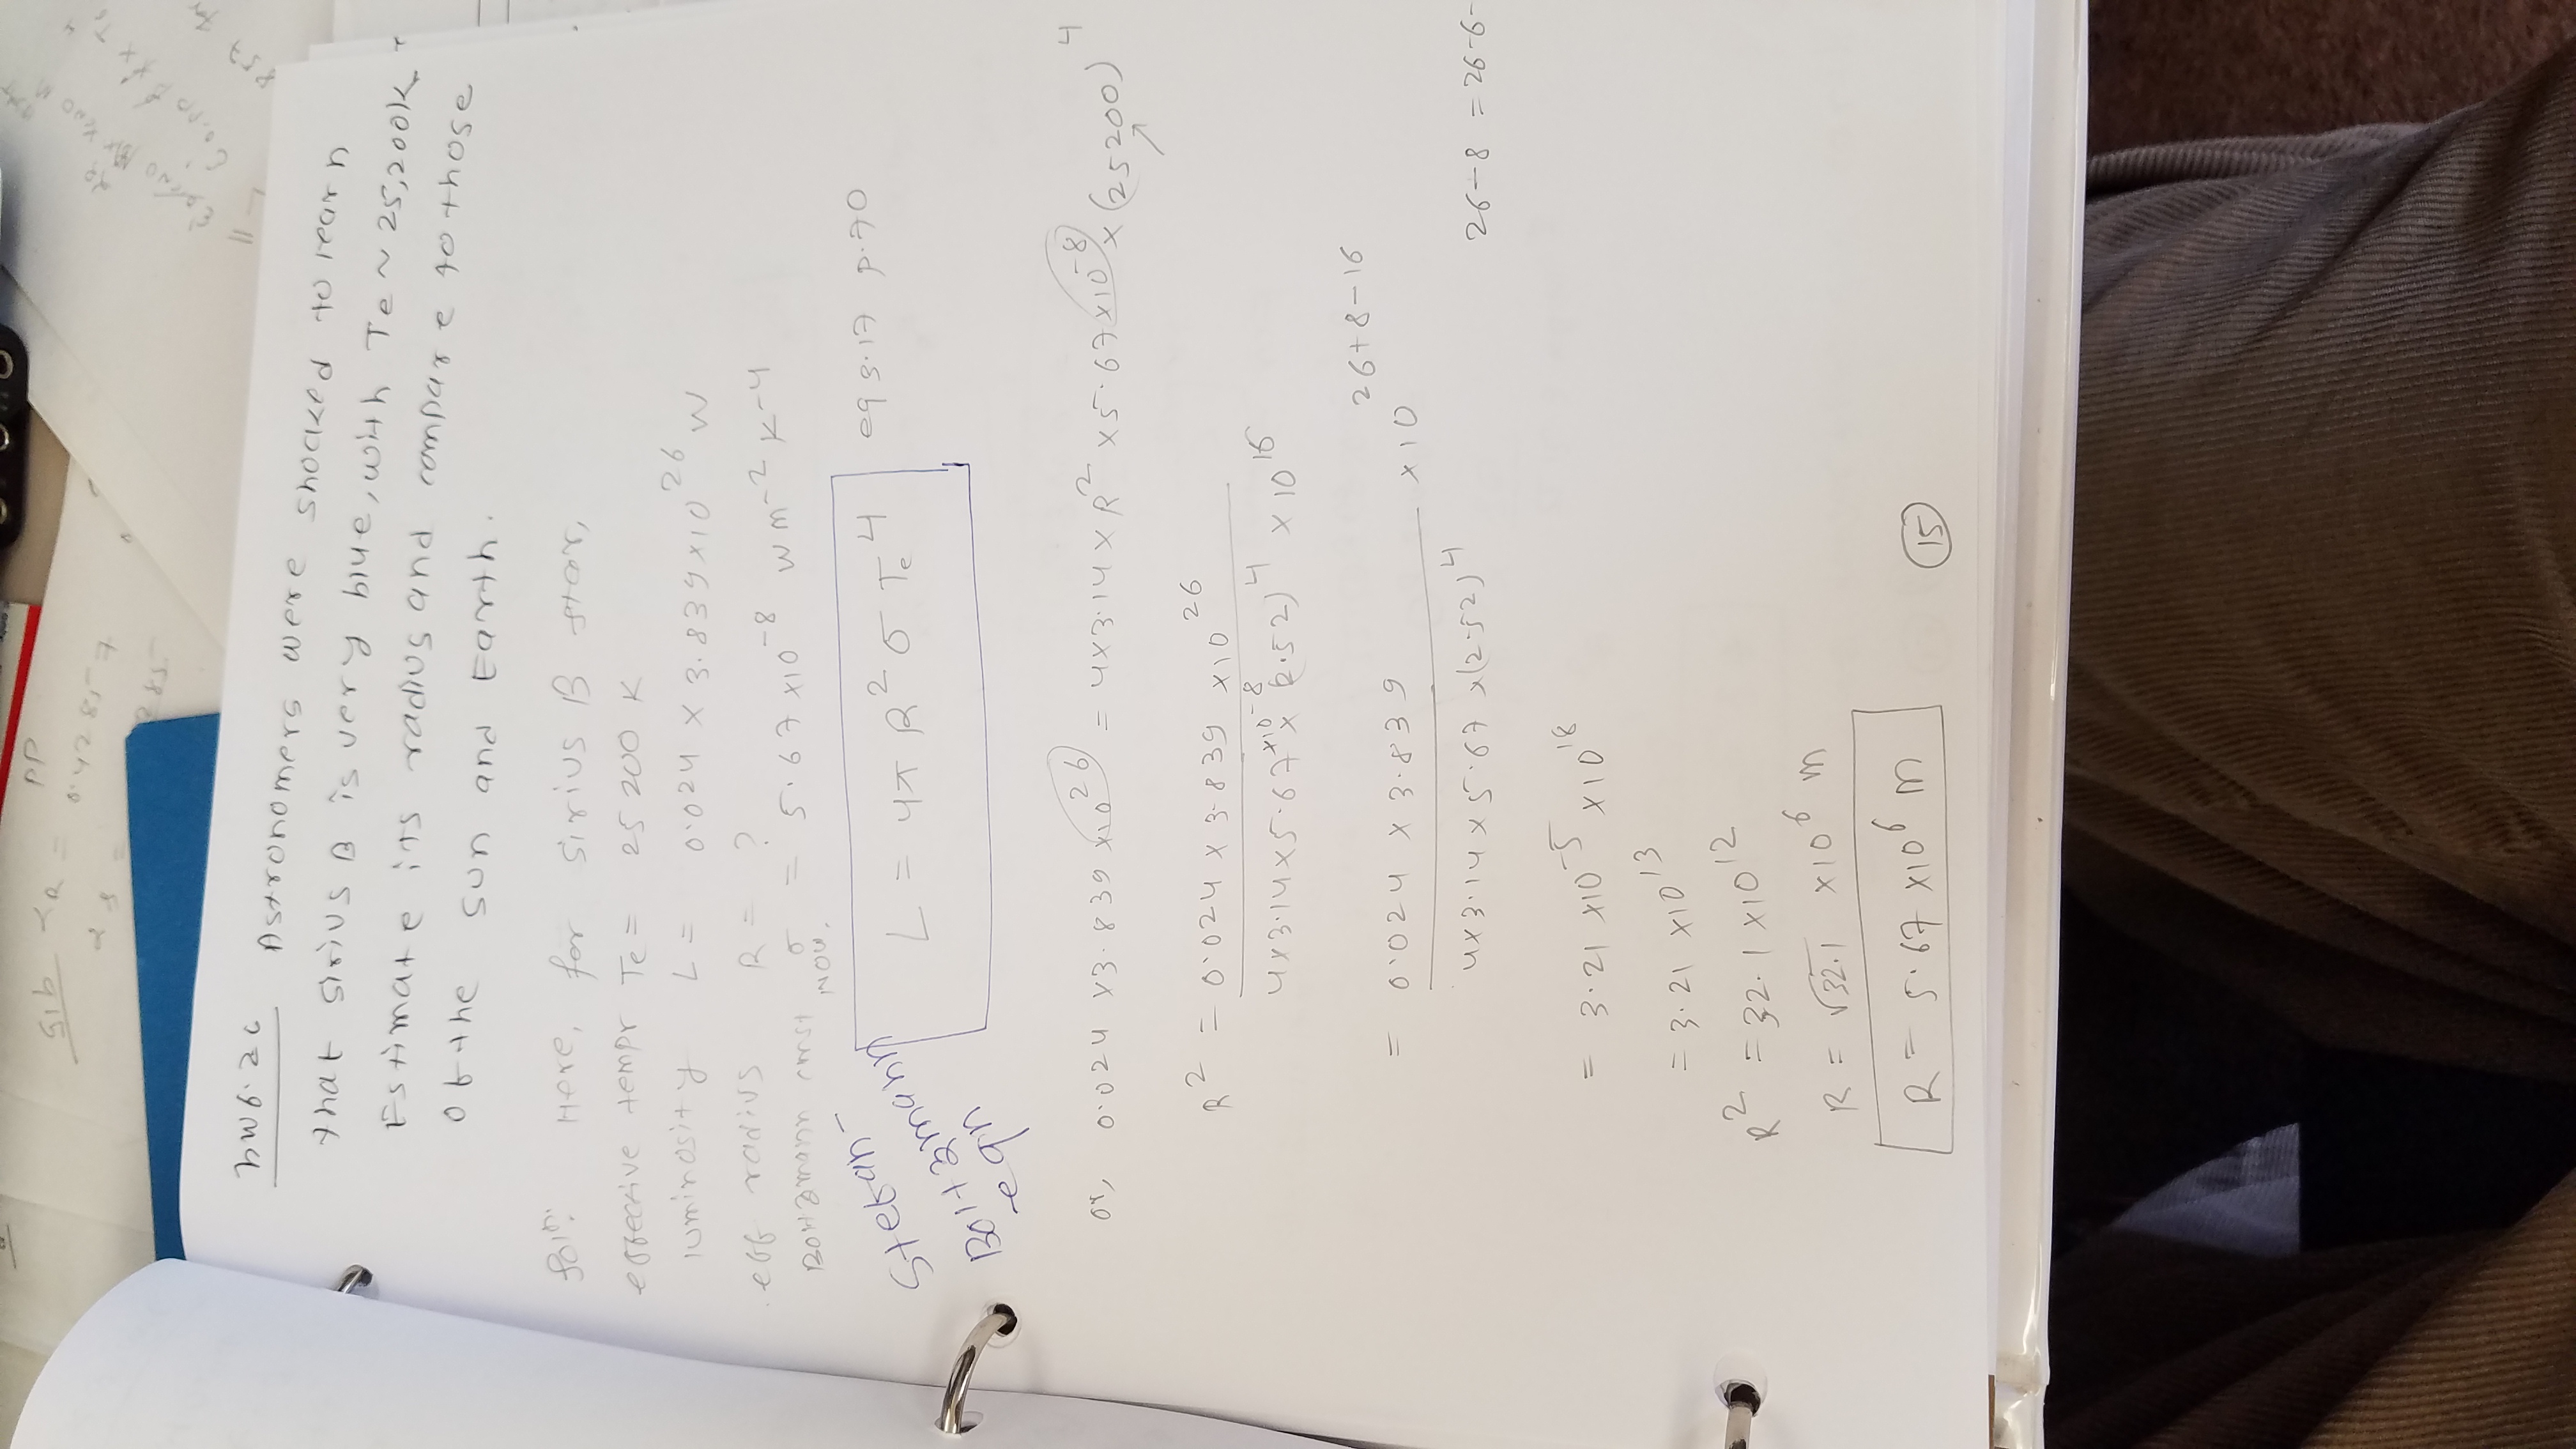 5.1b α_R = PP
0.42857
hw6.2c Astronomers were shocked to learn
that sirius B is very blue, with Te ~ 25,200K.
Estimate its radius and compare to those
of the sun and Earth.
Soln: Here, for sirius B star,
effective tempr Te = 25200 K
luminosity L = 0.024 × 3.839×10^26 W
eff radius R = ?
Boltzmann cnst σ = 5.67×10^-8 W m^-2 K^-4
Now,
Stefan-
Boltzmann
eqn
L = 4π R^2 σ Te^4 eq 3.17 p.70
or, 0.024 ×3.839 ×10^26 = 4×3.14×R^2 ×5.67×10^-8 × (25200)^4
R^2 = 0.024 × 3.839 ×10^26
4×3.14×5.67×10^-8 × (2.52)^4 × 10^16
= 0.024 × 3.839 ×10^26+8-16
4×3.14×5.67 ×(2.52)^4
26-8 = 26-6-
= 3.21 ×10^-5 ×10^18
= 3.21 ×10^13
R^2 = 32.1 ×10^12
R = √32.1 ×10^6 m
R = 5.67 ×10^6 m
15